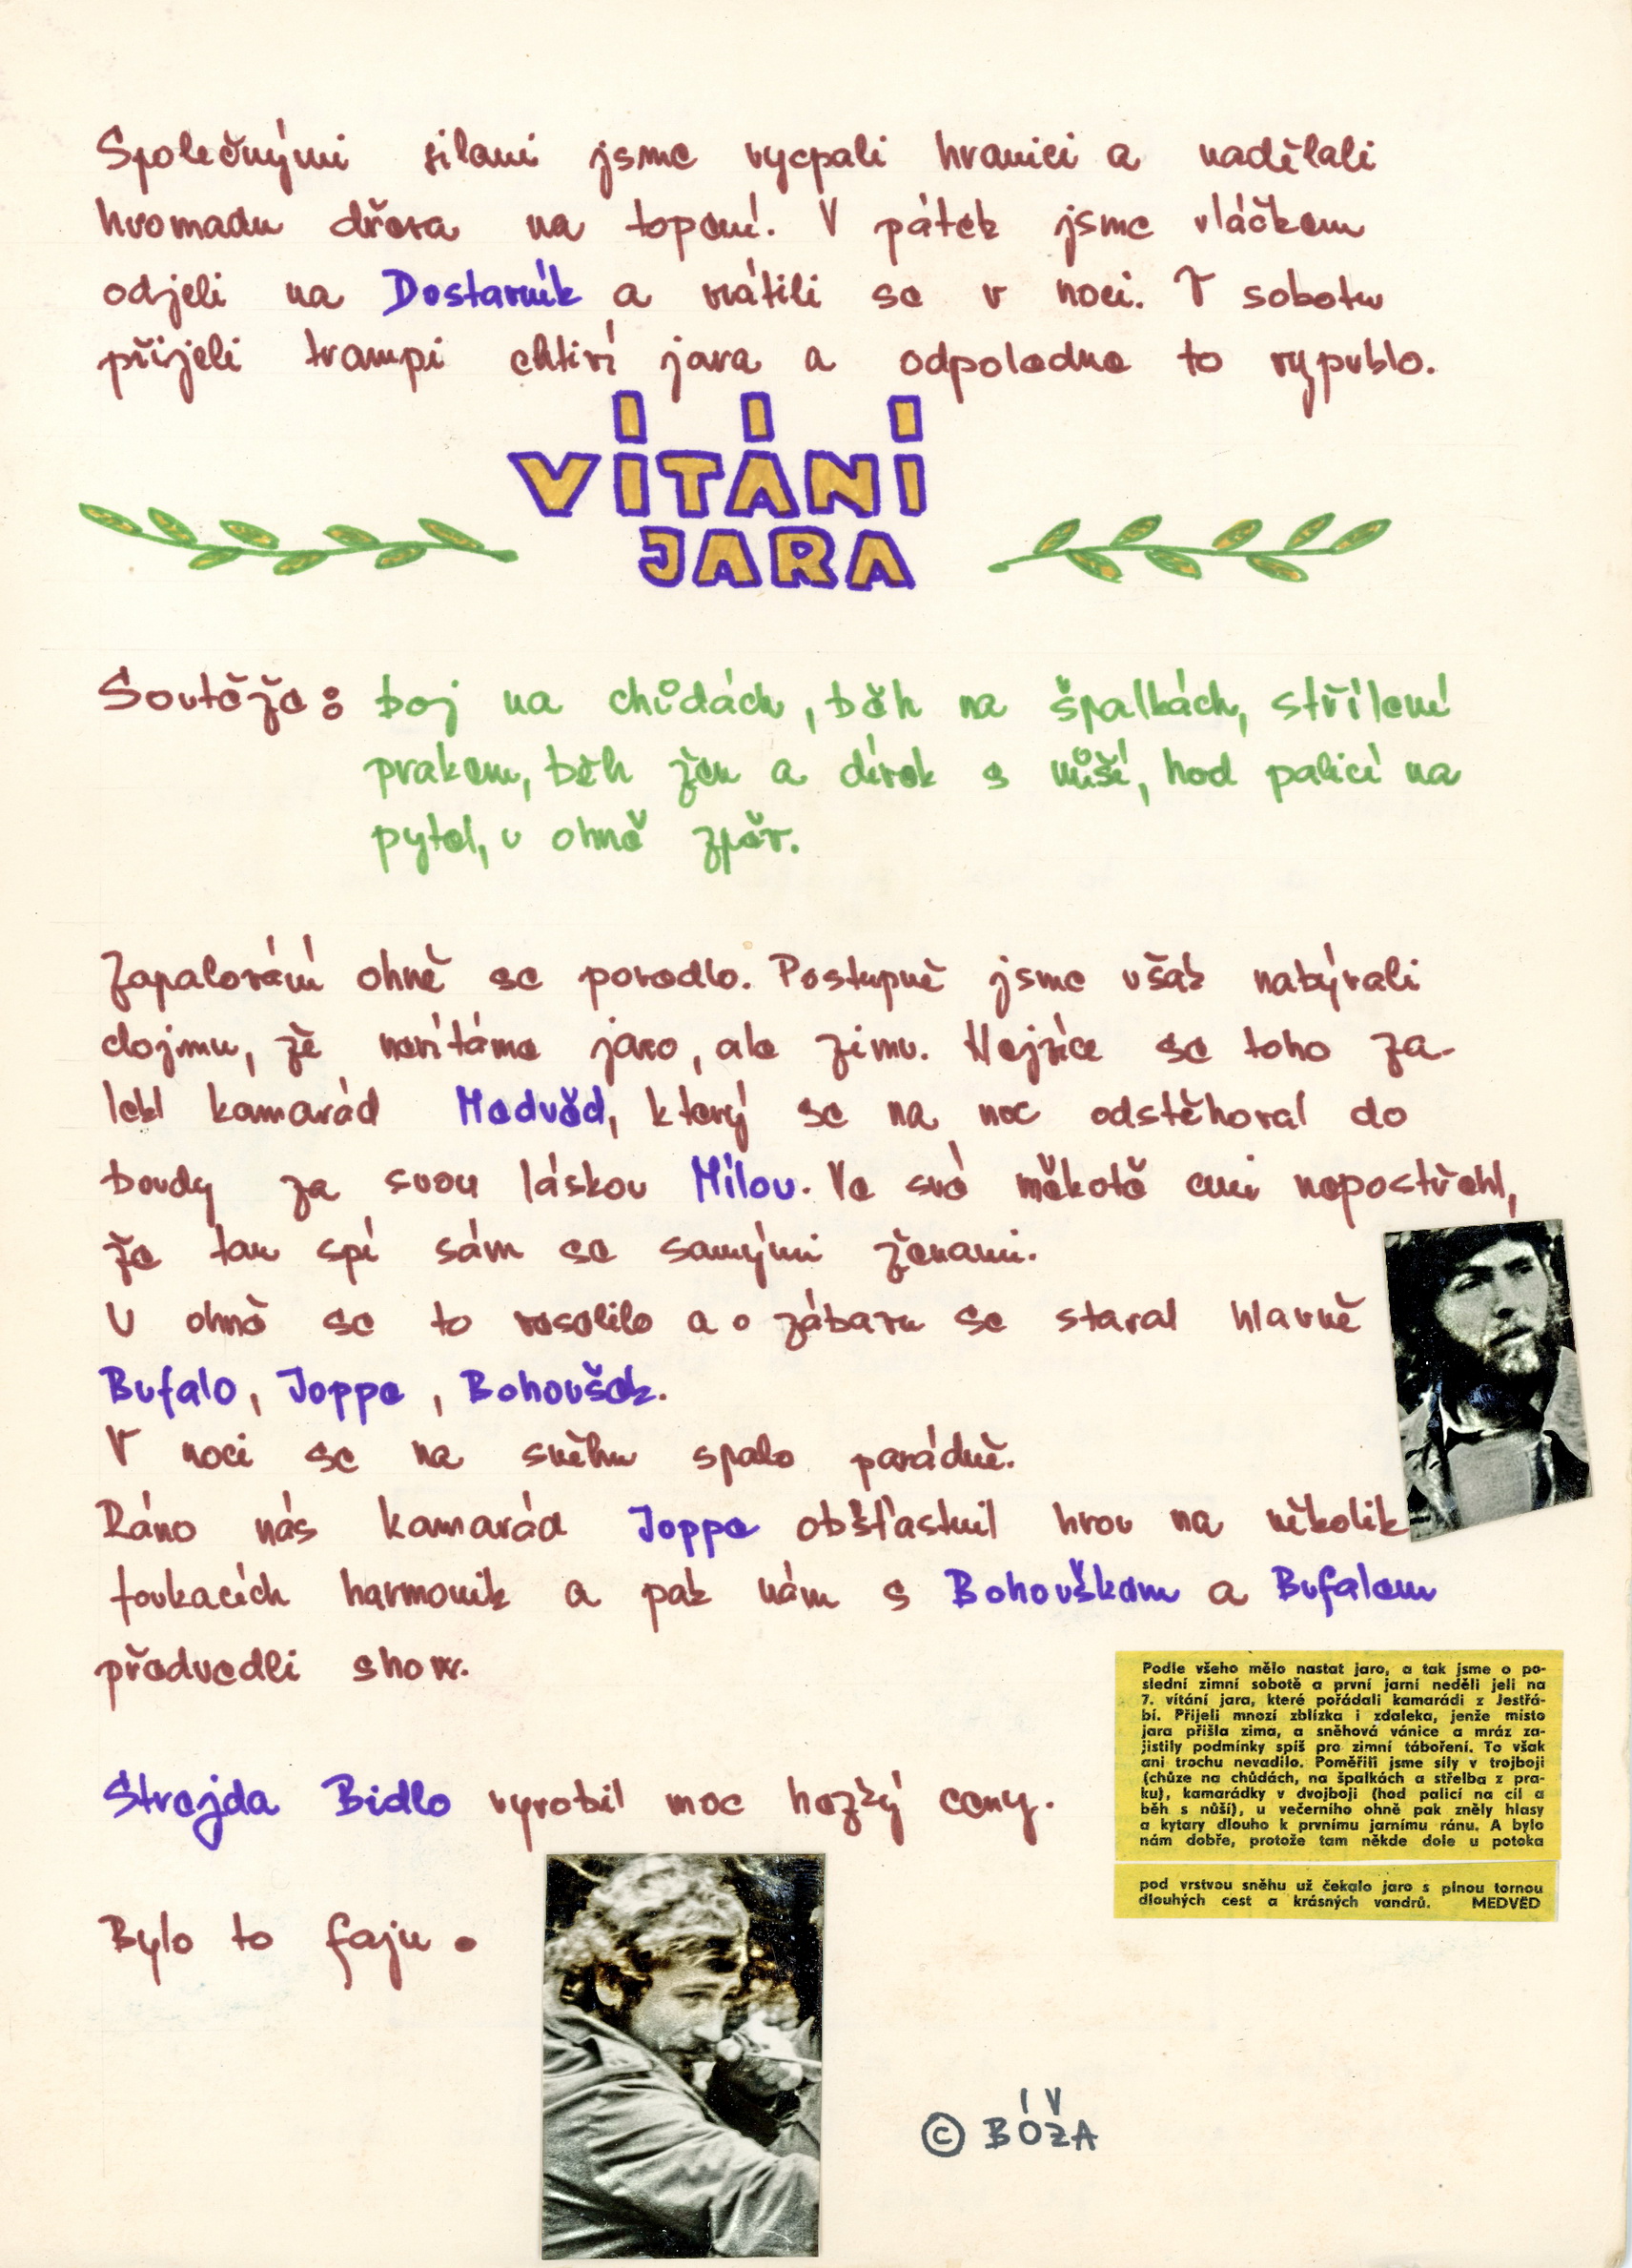 Společnými silami jsme vycpali hranici a nadělali
hromadu dřeva na topení. V pátek jsme vláčkem
odjeli na Dostavník a vrátili se v noci. V sobotu
přijeli trampi chtiví jara a odpoledne to vypuklo.
VÍTÁNÍ
JARA
Soutěže: boj na chůdách, běh na špalkách, střílení
prakem, běh žen a dívek s nůší, hod palicí na
pytel, u ohně zpěv.
Zapalování ohně se povedlo. Postupně jsme však nabývali
dojmu, že nevítáme jaro, ale zimu. Nejvíce se toho za-
lekl kamarád Medvěd, který se na noc odstěhoval do
boudy za svou láskou Mílou. Ve své měkotě ani nepostřehl,
že tam spí sám se samými ženami.
U ohně se to rosolilo a o zábavu se staral hlavně
Bufalo, Joppe, Bohoušek.
V noci se na sněhu spalo parádně.
Ráno nás kamarád Joppe obšťastnil hrou na několik
foukacích harmonik a pak nám s Bohouškem a Bufalem
předvedli show.
Podle všeho mělo nastat jaro, a tak jsme o po-
slední zimní sobotě a první jarní neděli jeli na
7. vítání jara, které pořádali kamarádi z Jestřá-
bí. Přijeli mnozí zblízka i zdaleka, jenže místo
jara přišla zima, a sněhová vánice a mráz za-
jistily podmínky spíš pro zimní táboření. To však
ani trochu nevadilo. Poměřili jsme síly v trojboji
(chůze na chůdách, na špalkách a střelba z pra-
ku), kamarádky v dvojboji (hod palicí na cíl a
běh s nůší), u večerního ohně pak zněly hlasy
a kytary dlouho k prvnímu jarnímu ránu. A bylo
nám dobře, protože tam někde dole u potoka
pod vrstvou sněhu už čekalo jaro s plnou tornou
dlouhých cest a krásných vandrů. MEDVĚD
Strejda Bidlo vyrobil moc hezký ceny.
Bylo to fajn.
© BÓŽA